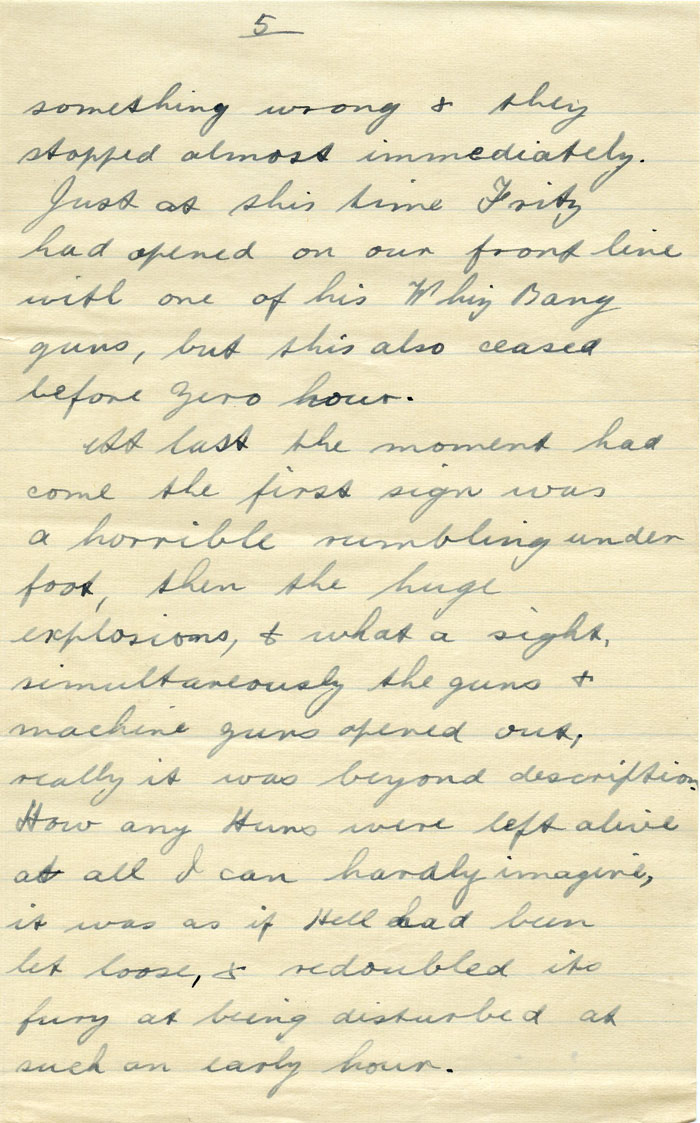 5
something wrong & they
stopped almost immediately.
Just at this time Fritz
had opened on our front line
with one of his Whiz Bang
guns, but this also ceased
before zero hour.
At last the moment had
come the first sign was
a horrible rumbling under
foot, then the huge
explosions, & what a sight,
simultaneously the guns &
machine guns opened out,
really it was beyond description.
How any Huns were left alive
at all I can hardly imagine,
it was as if Hell had been
let loose, & redoubled its
fury at being disturbed at
such an early hour.